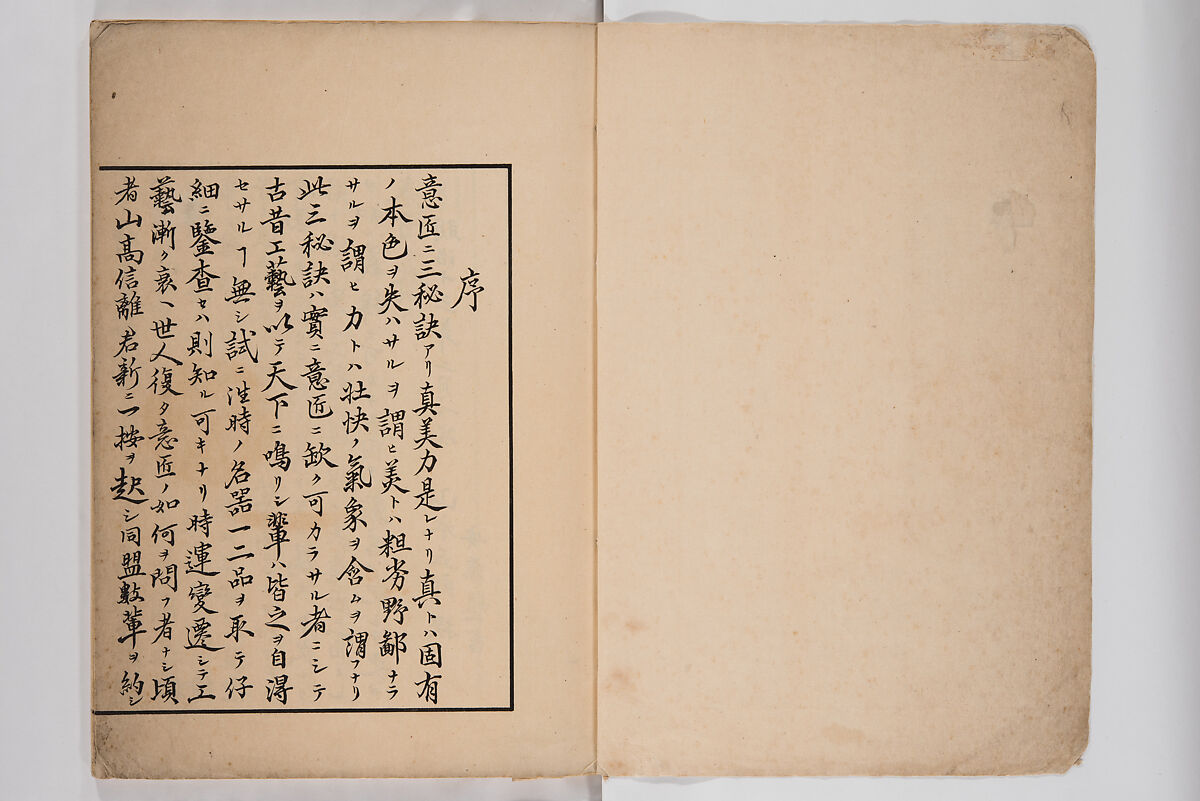 序
意匠ニ三秘訣アリ真美力是レナリ真トハ固有
ノ本色ヲ失ハサルヲ謂ヒ美トハ粗劣野鄙ナラ
サルヲ謂ヒ力トハ壮快ノ氣象ヲ含ムヲ謂フナリ
此三秘訣ハ實ニ意匠ニ缺ク可カラサル者ニシテ
古昔工藝ヲ以テ天下ニ鳴リシ輩ハ皆之ヲ自得
セサルヿ無シ試ニ往時ノ名器一二品ヲ取テ仔
細ニ鑒查セハ則知ル可キナリ時運變遷シテ工
藝漸ク衰ヘ世人復タ意匠ノ如何ヲ問フ者ナシ頃
者山高信離君新ニ一按ヲ起シ同盟數輩ヲ約シ